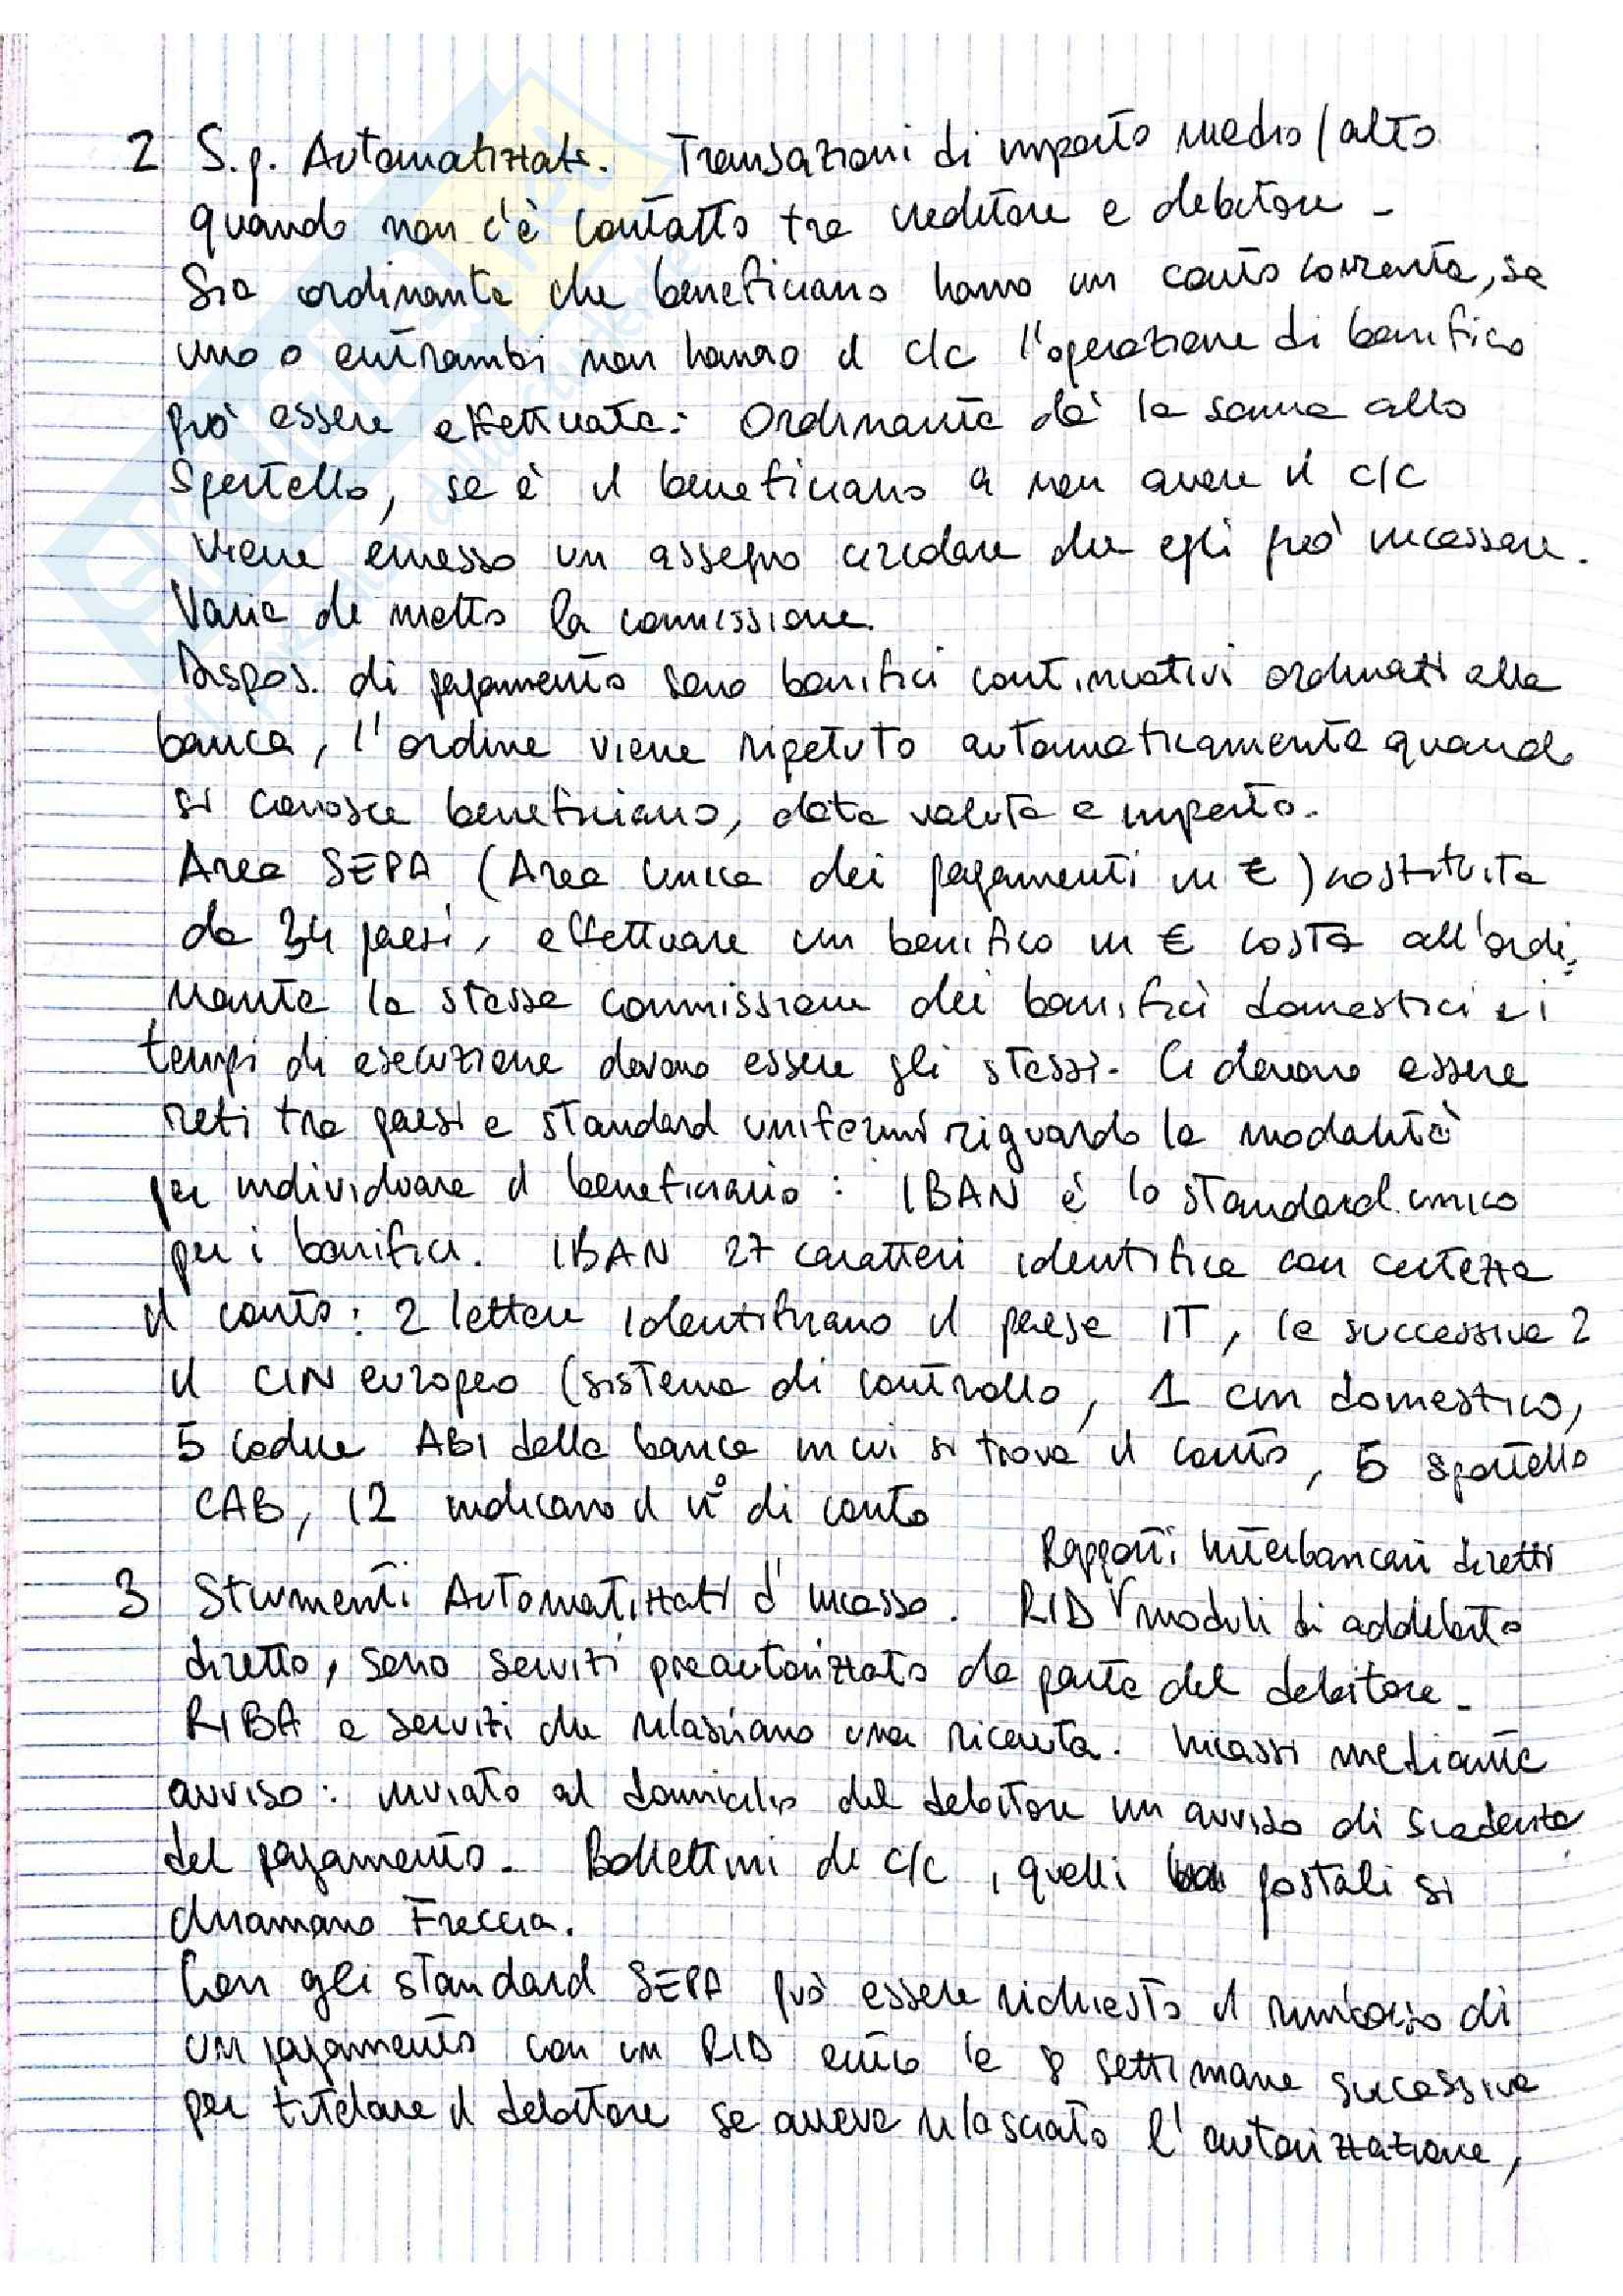 2 S.p. Automatizzati. Transazioni di importo medio/alto
quando non c'è contatto tra creditore e debitore -
Sia ordinante che beneficiario hanno un conto corrente, se
uno o entrambi non hanno il c/c l'operazione di bonifico
può essere effettuata: Ordinante dà la somma allo
Sportello, se è il beneficiario a non avere il c/c
viene emesso un assegno circolare che egli può incassare.
Varia di molto la commissione.
Dispos. di pagamento sono bonifici continuativi ordinati alla
banca, l'ordine viene ripetuto automaticamente quando
si conosce beneficiario, data valuta e importo.
Area SEPA (Area unica dei pagamenti in €) costituita
da 34 paesi, effettuare un bonifico in € costa all'ordi
nante la stessa commissione dei bonifici domestici e i
tempi di esecuzione devono essere gli stessi. Ci devono essere
reti tra paesi e standard uniformi riguardo la modalità
per individuare il beneficiario: IBAN è lo standard unico
per i bonifici. IBAN 27 caratteri identifica con certezza
il conto: 2 lettere identificano il paese IT, le successive 2
il CIN europeo (sistema di controllo, 1 cin domestico,
5 codice ABI della banca in cui si trova il conto, 5 sportello
CAB, 12 indicano il n° di conto
Rapporti Interbancari diretti
3 Strumenti Automatizzati d'incasso. RID moduli di addebito
diretto, sono servizi preautorizzato da parte del debitore -
RIBA e servizi che rilasciano una ricevuta. Incassi mediante
avviso: inviato al domicilio del debitore un avviso di scadenza
del pagamento - Bollettini di c/c, quelli postali si
chiamano Freccia.
Con gli standard SEPA può essere richiesto il rimborso di
un pagamento con un RID entro le 8 settimane successive
per tutelare il debitore se aveva rilasciato l'autorizzazione,